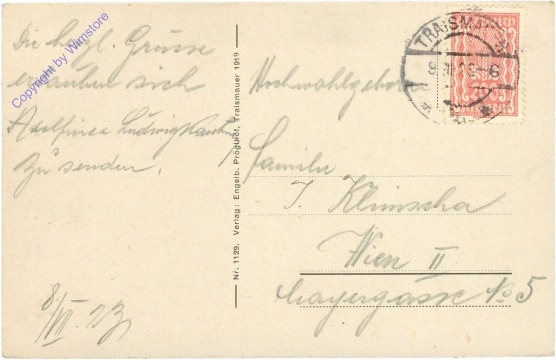 Die herzl. Grüsse
erlauben sich
Adolfine u Ludwig
zu senden.
8/VII. 23
Copyright by Wimstore
Nr. 1129. Verlag: Engelb. Proglhöf, Traismauer 1919
TRAISMAUER
Hochwohlgeboren
Familie
J. Klimscha
Wien II
Mayergasse No 5